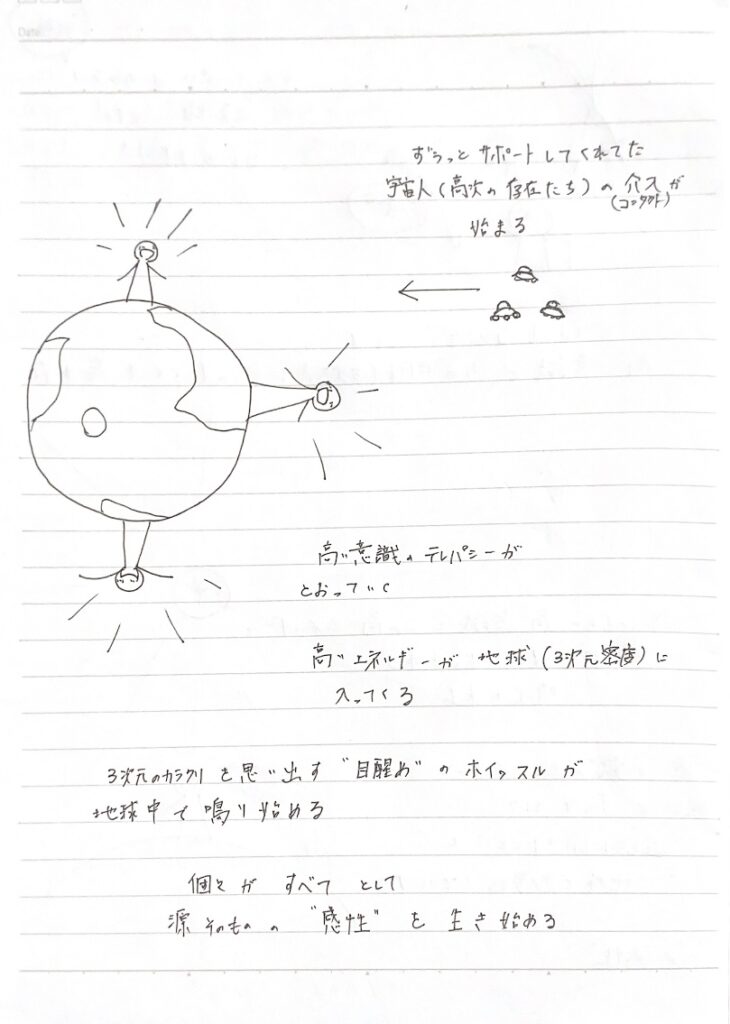 ずうっと サポートしてくれてた
宇宙人(高次の存在たち)の 介入が
(コンタクト)
始まる
高い意識の テレパシーが
とおっていく
高いエネルギーが 地球(3次元密度)に
入ってくる
3次元のカラクリを思い出す "目醒め"の ホイッスルが
地球中で 鳴り始める
個々が すべて として
源そのものの "感性"を 生き始める